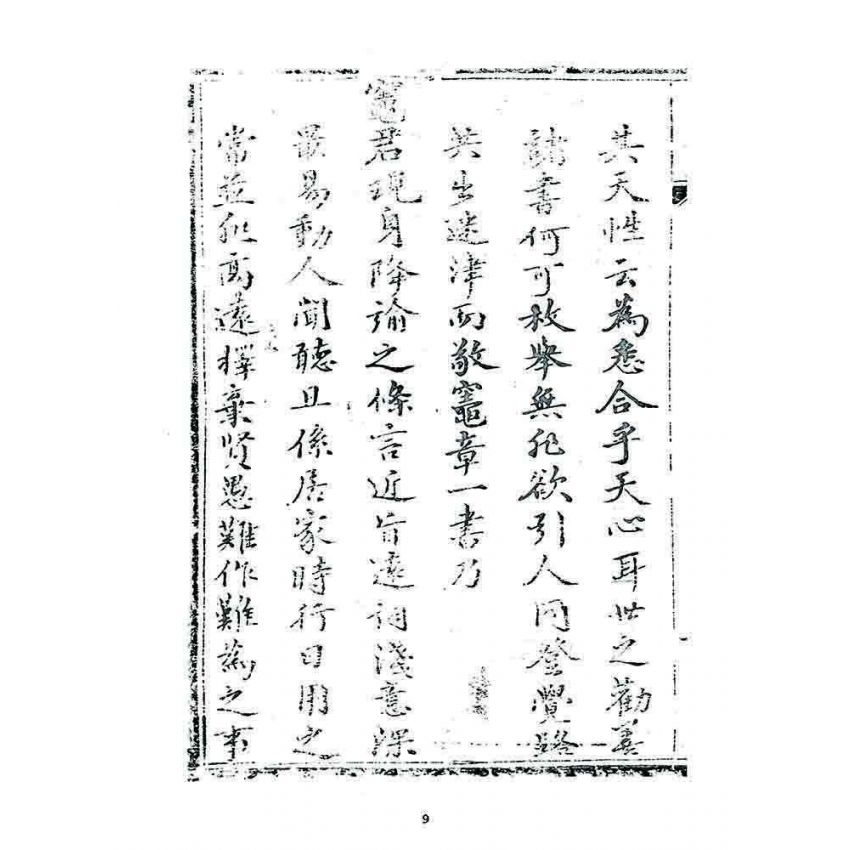 其天性云為悉合乎天心耳世之勸善
諸書何可枚舉無非欲引人同登覺路
共出迷津而敬竈章一書乃
竈君現身降諭之條言近旨遠詞淺意深
最易動人聞聽且係居家時行日用之
當並非高遠擇棄賢愚難作難為之事
9